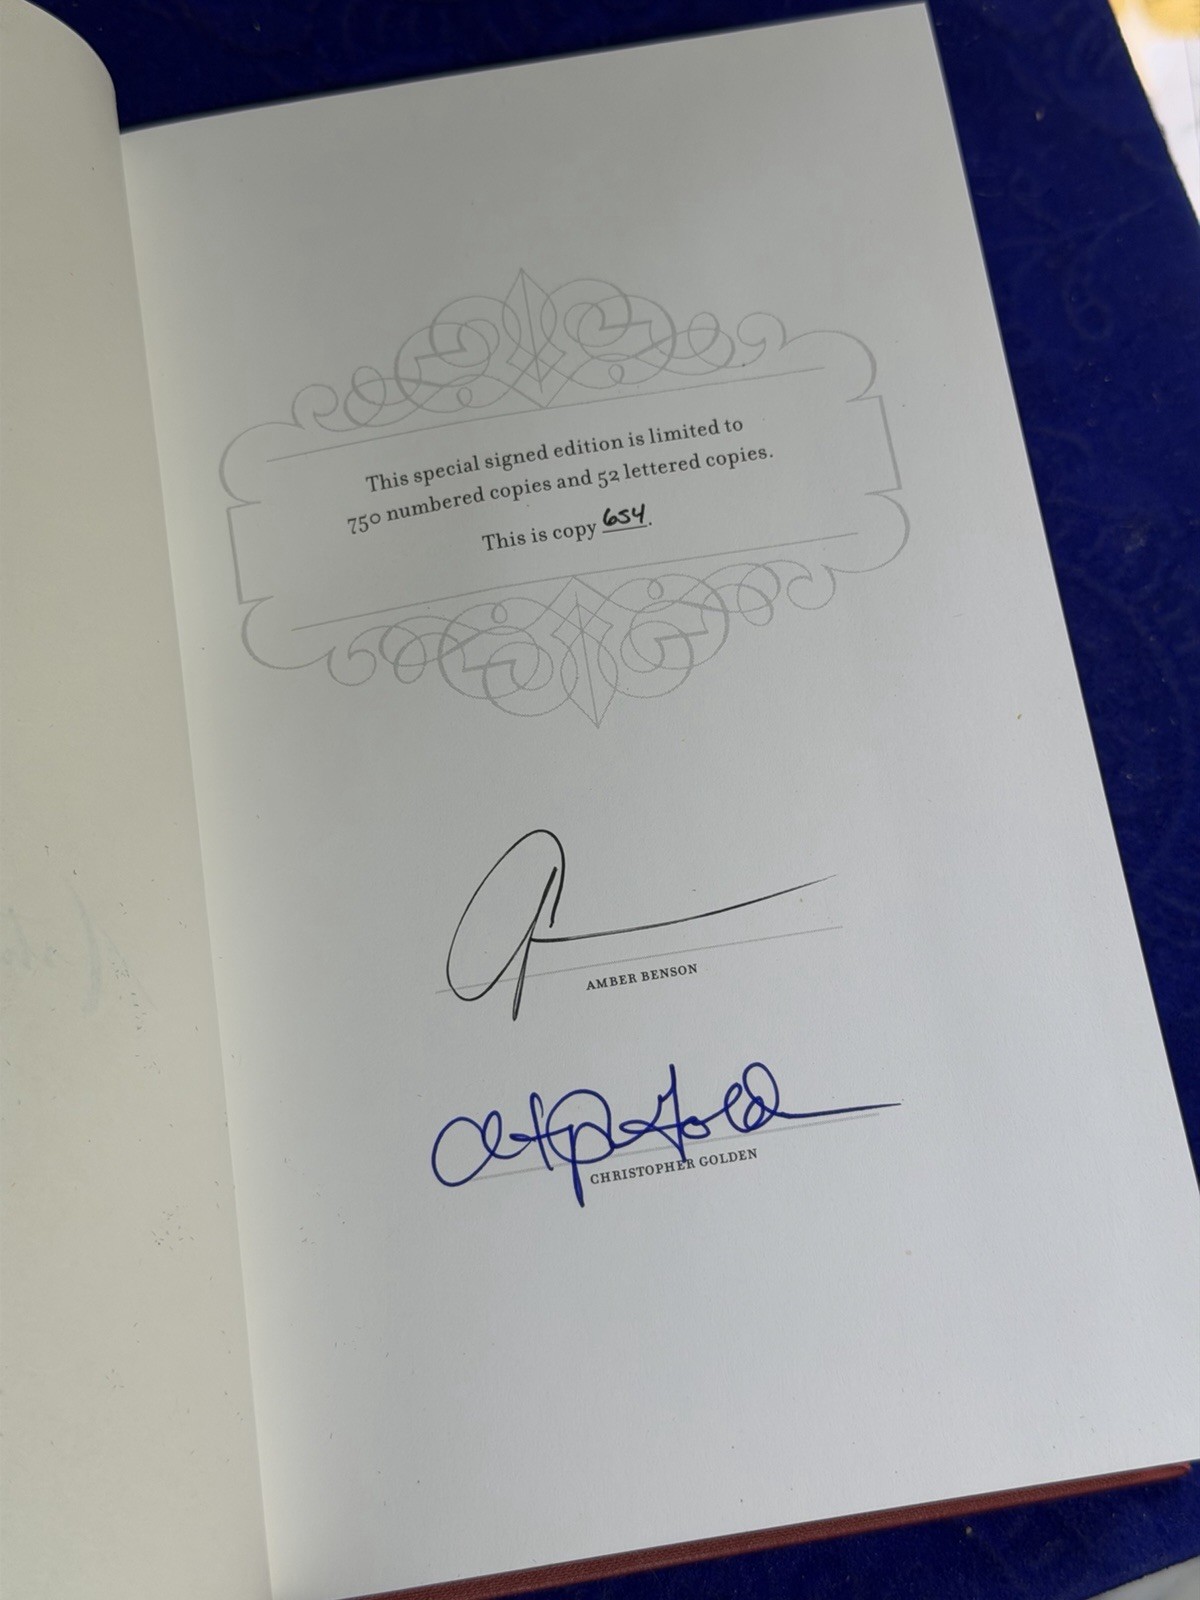 This special signed edition is limited to
750 numbered copies and 52 lettered copies.
This is copy 654.
AMBER BENSON
CHRISTOPHER GOLDEN